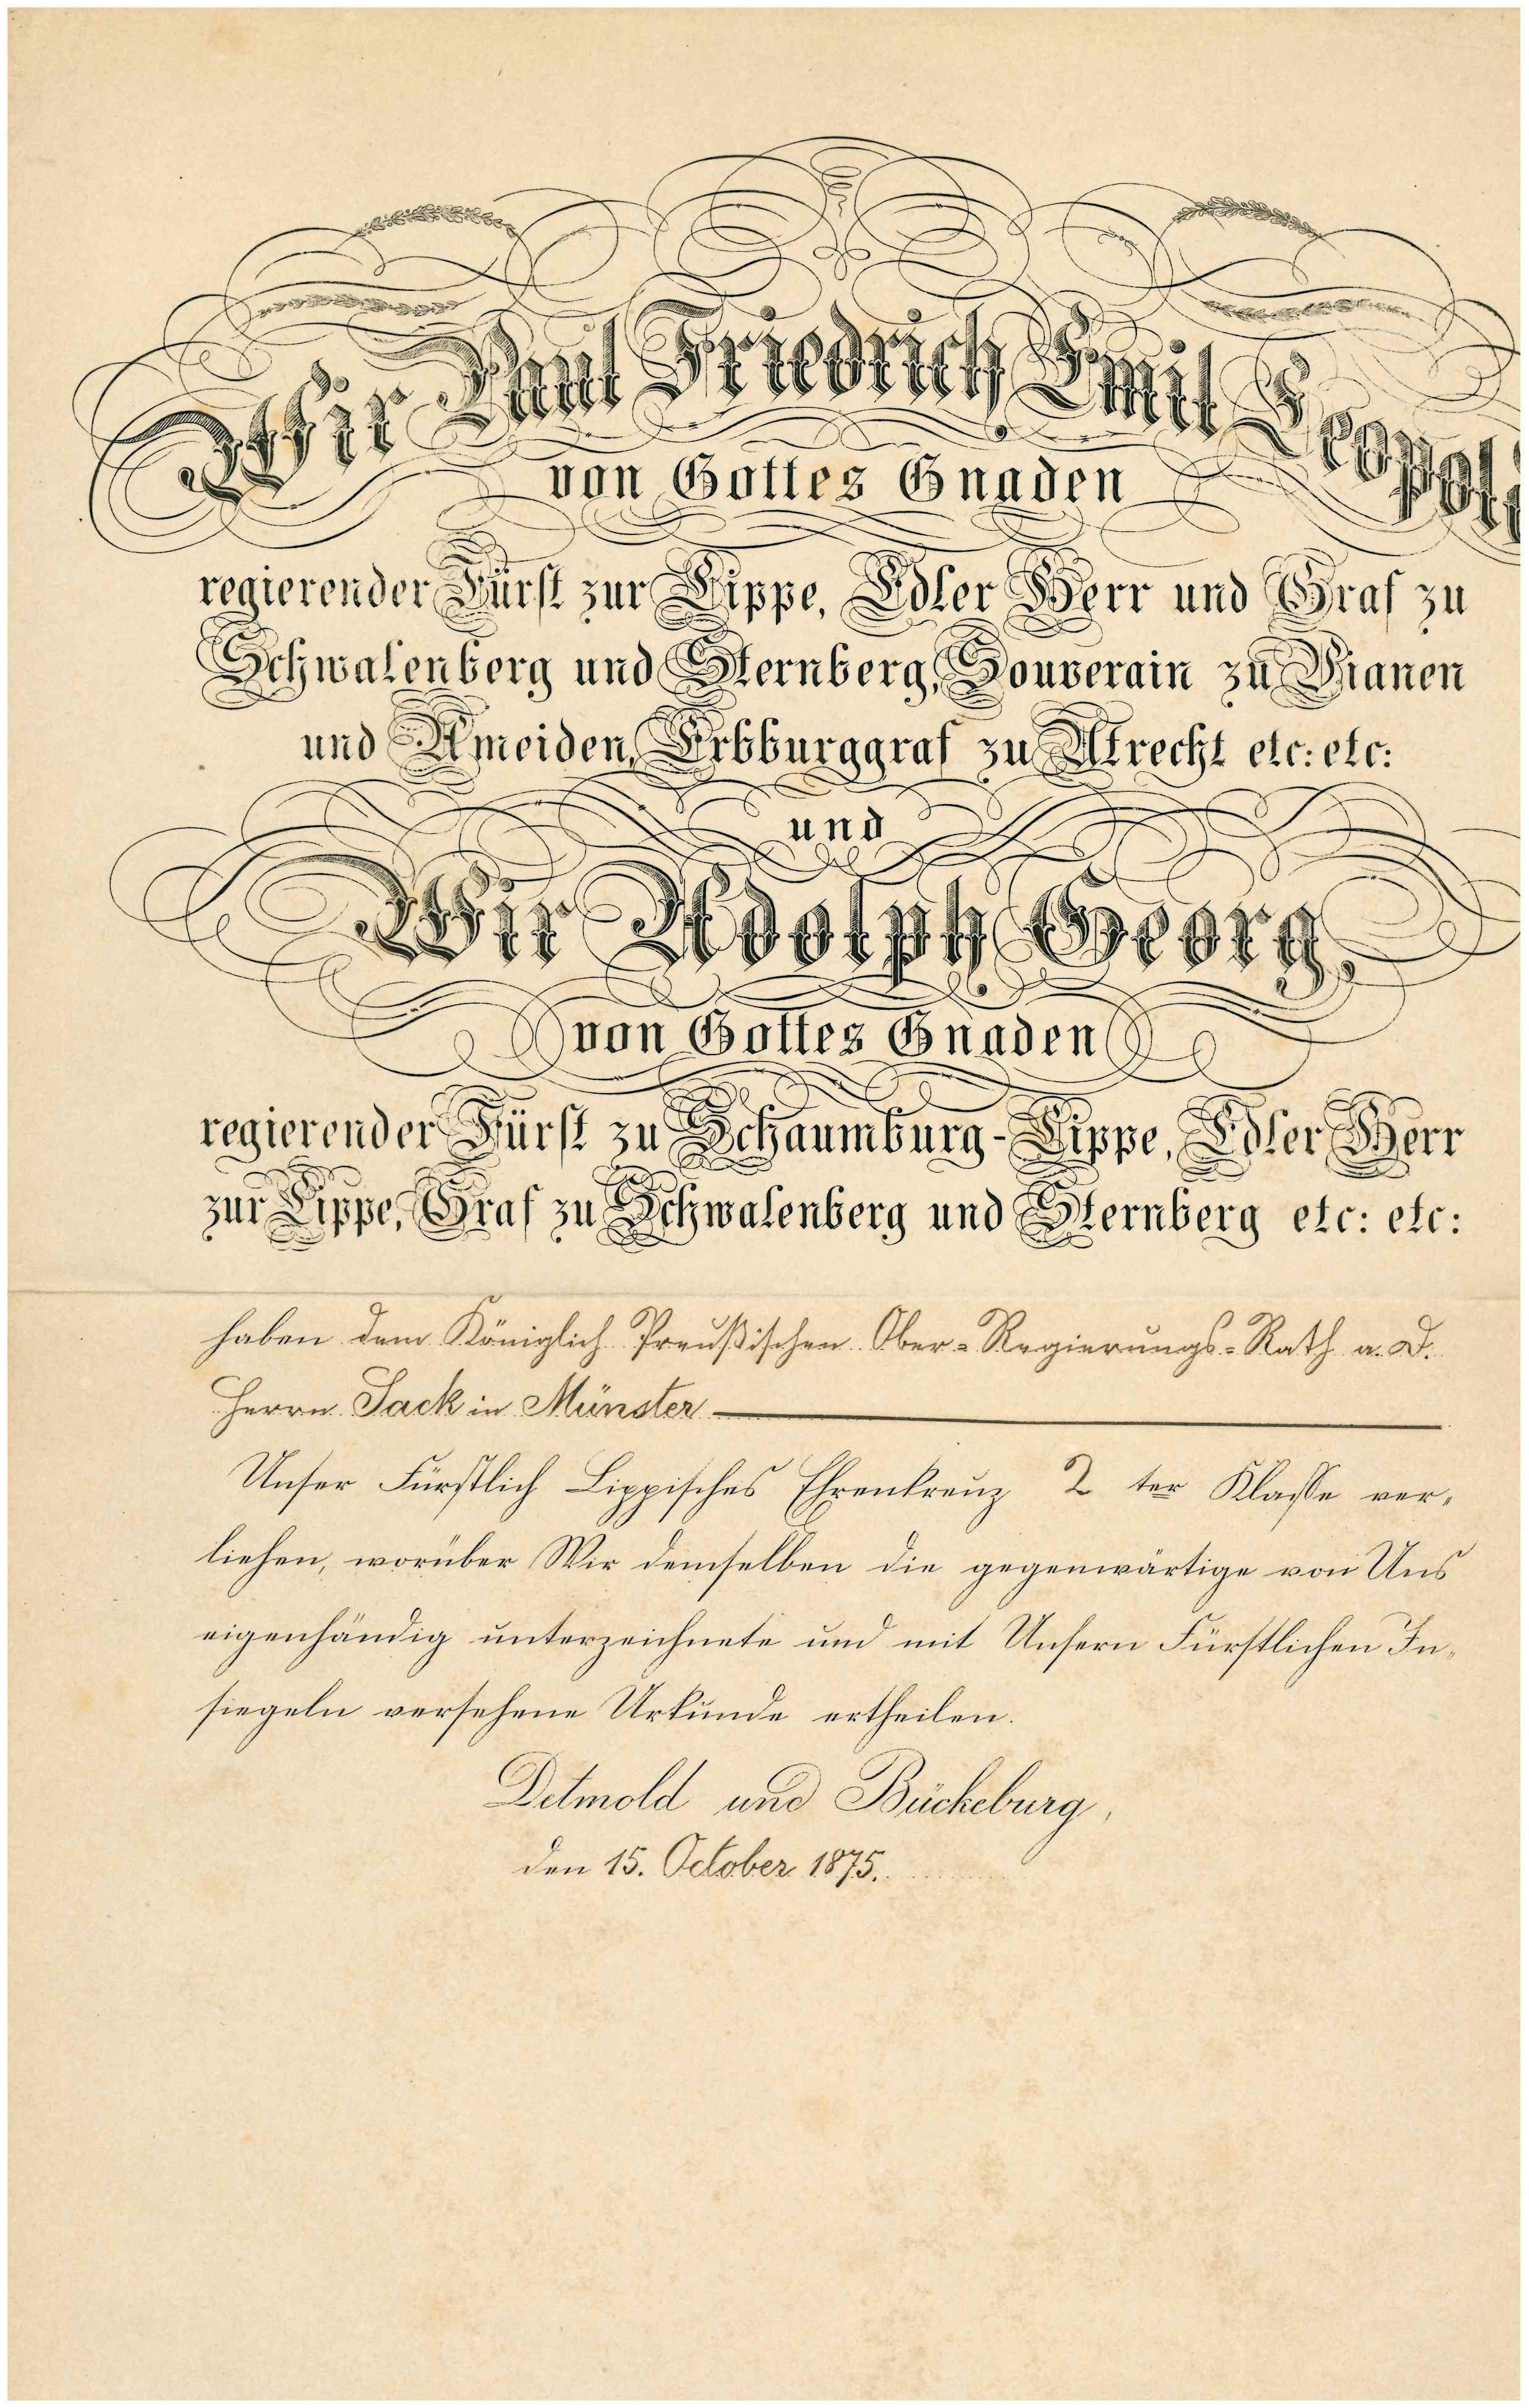 Wir Paul Friedrich Emil Leopold
von Gottes Gnaden
regierender Fürst zur Lippe, Edler Herr und Graf zu
Schwalenberg und Sternberg, Souverain zu Vianen
und Ameiden, Erbburggraf zu Utrecht etc: etc:
und
Wir Adolph Georg,
von Gottes Gnaden
regierender Fürst zu Schaumburg-Lippe, Edler Herr
zur Lippe, Graf zu Schwalenberg und Sternberg etc: etc:
haben dem Königlich Preußischen Ober-Regierungs-Rath a. D.
Herrn Sack in Münster
Unser Fürstlich Lippisches Ehrenkreuz 2 ter Klasse ver-
liehen, worüber Wir demselben die gegenwärtige von Uns
eigenhändig unterzeichnete und mit Unsern Fürstlichen In-
siegeln versehene Urkunde ertheilen.
Detmold und Bückeburg,
den 15. October 1875.